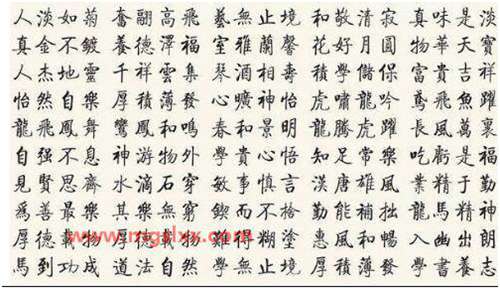 人淡如菊 奮翮高飛 藝無止境 和敬清寂 真味是淡
真金不鍍 養德澤福 室雅蘭馨 花好月圓 物華天寶
人杰地靈 千祥雲集 琴酒相壽 積學儲保 富貴吉祥
怡然自樂 厚積薄發 心曠神怡 虎嘯龍吟 鳶飛魚躍
龍飛鳳舞 鸞鳳和鳴 春和景明 龍騰虎躍 長風萬裏
自强不息 神游物外 學貴心悟 知足常樂 吃虧是福
見賢思齊 水滴石穿 敏事慎言 漢唐雄風 業精于勤
爲善最樂 其樂無窮 鍥而不捨 勤能補拙 龍馬精神
厚德載物 厚 難得糊塗 惠風和暢 入幽出朗
馬到功成 道法自然 學無止境 厚積薄發 學書養志